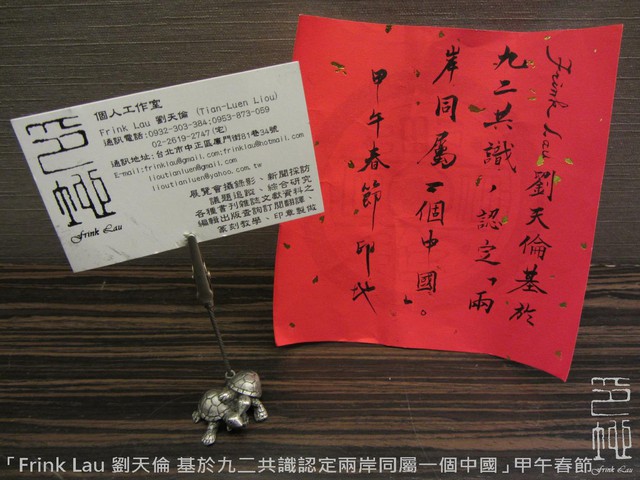 個人工作室
Frink Lau 劉天倫 (Tian-Luen Liou)
通訊電話:0932-303-384;0953-873-059
02-2619-2747(宅)
通訊地址:台北市中正區廈門街81巷34號
E-mail:frinklau@gmail.com;frinklau@hotmail.com
lioutianluen@gmail.com
lioutianluen@yahoo.com.tw
展覽會攝錄影、新聞採訪
議題追蹤、綜合研究
各種書刊雜誌文獻資料之
編輯出版查詢訂閱翻譯、
篆刻教學、印章製做
Frink Lau
Frink Lau 劉天倫基於
九二共識,認定,兩
岸同屬一個中國。
甲午春節印地
「Frink Lau 劉天倫 基於九二共識認定兩岸同屬一個中國」甲午春節
Frink Lau